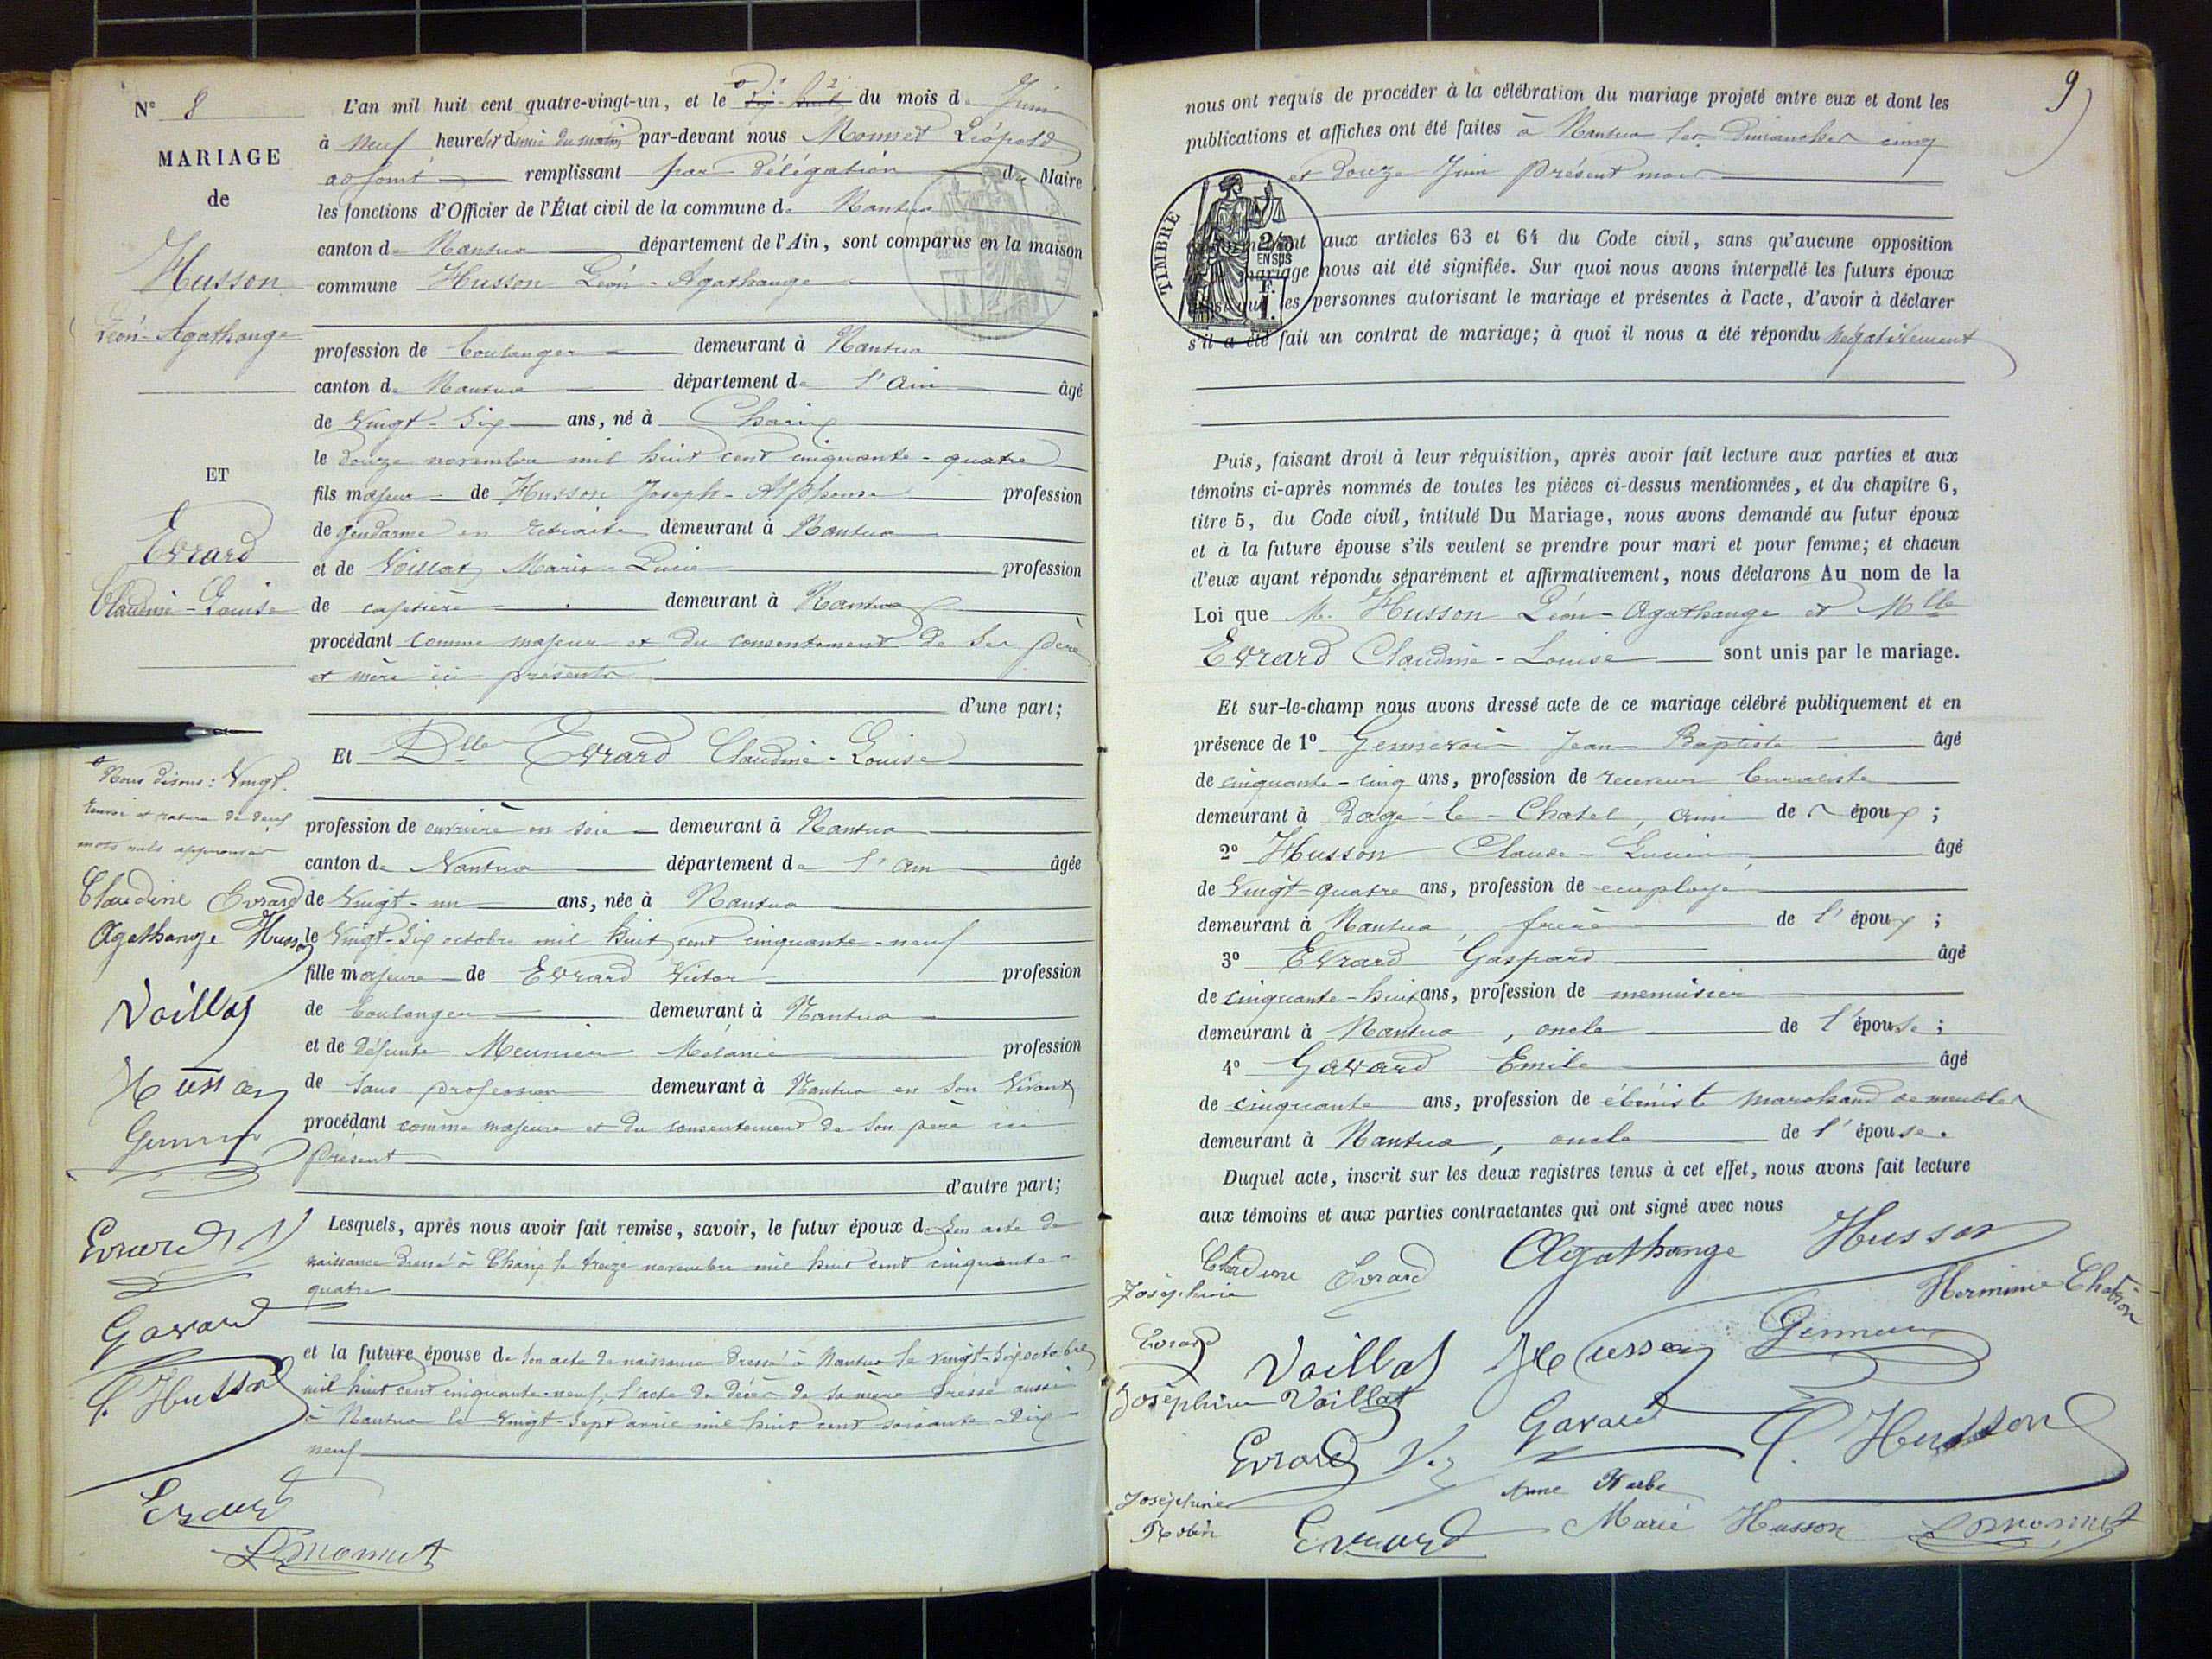 N° 8
MARIAGE
de
Husson
Léon-Agathange
ET
Evrard
Claudine-Louise
Nous disons: Vingt.
renvoi et rature de deux
mots nuls approuvés
Claudine Evrard
Agathange Husson
Voillat
Husson
Evrard V
Gavard
C. Husson
Evrard
L Monnet
L'an mil huit cent quatre-vingt-un, et le dix-huit du mois de Juin
à neuf heures et demie du matin par-devant nous Monnet Léopold
adjoint remplissant par délégation du Maire
les fonctions d'Officier de l'État civil de la commune de Nantua
canton de Nantua département de l'Ain, sont comparus en la maison
commune Husson Léon-Agathange
profession de boulanger demeurant à Nantua
canton de Nantua département de l'Ain âgé
de Vingt-six ans, né à Charix
le douze novembre mil huit cent cinquante-quatre
fils majeur de Husson Joseph-Alphonse profession
de gendarme en retraite demeurant à Nantua
et de Voillat Marie-Lucie profession
de cafetière demeurant à Nantua
procédant comme majeur et du consentement de ses père
et mère ici présents
d'une part;
Et Dlle Evrard Claudine-Louise
profession de ouvrière en soie demeurant à Nantua
canton de Nantua département de l'Ain âgée
de Vingt-un ans, née à Nantua
le Vingt-six octobre mil huit cent cinquante-neuf
fille majeure de Evrard Victor profession
de boulanger demeurant à Nantua
et de défunte Meunier Mélanie profession
de sans profession demeurant à Nantua en son vivant
procédant comme majeure et du consentement de son père ici
présent
d'autre part;
Lesquels, après nous avoir fait remise, savoir, le futur époux de son acte de
naissance dressé à Charix le treize novembre mil huit cent cinquante-
quatre
et la future épouse de son acte de naissance dressé à Nantua le vingt-six octobre
mil huit cent cinquante-neuf, l'acte de décès de sa mère dressé aussi
à Nantua le vingt-sept avril mil huit cent soixante-dix-
neuf
9
nous ont requis de procéder à la célébration du mariage projeté entre eux et dont les
publications et affiches ont été faites à Nantua les Dimanches cinq
et douze Juin présent mois
TIMBRE
2/10
EN SUS
aux articles 63 et 64 du Code civil, sans qu'aucune opposition
mariage nous ait été signifiée. Sur quoi nous avons interpellé les futurs époux
les personnes autorisant le mariage et présentes à l'acte, d'avoir à déclarer
s'il a été fait un contrat de mariage; à quoi il nous a été répondu négativement
Puis, faisant droit à leur réquisition, après avoir fait lecture aux parties et aux
témoins ci-après nommés de toutes les pièces ci-dessus mentionnées, et du chapitre 6,
titre 5, du Code civil, intitulé Du Mariage, nous avons demandé au futur époux
et à la future épouse s'ils veulent se prendre pour mari et pour femme; et chacun
d'eux ayant répondu séparément et affirmativement, nous déclarons Au nom de la
Loi que M. Husson Léon-Agathange et Mlle
Evrard Claudine-Louise sont unis par le mariage.
Et sur-le-champ nous avons dressé acte de ce mariage célébré publiquement et en
présence de 1° Jean-Baptiste âgé
de cinquante-cinq ans, profession de receveur buraliste
demeurant à Bagé-le-Chatel, ami de époux;
2° Husson Claude-Lucien, âgé
de Vingt-quatre ans, profession de employé
demeurant à Nantua, frère de l'époux;
3° Evrard Gaspard âgé
de cinquante-huit ans, profession de menuisier
demeurant à Nantua, oncle de l'épouse;
4° Gavard Emile âgé
de cinquante ans, profession de ébéniste marchand de meubles
demeurant à Nantua, oncle de l'épouse.
Duquel acte, inscrit sur les deux registres tenus à cet effet, nous avons fait lecture
aux témoins et aux parties contractantes qui ont signé avec nous
Claudine Evrard Agathange Husson
Joséphine Evrard
Herminie Chatron
Voillat Husson
Joséphine Voillat
Gavard C. Husson
Evrard V.
Joséphine Robin
Anne
Evrard Marie Husson L Monnet